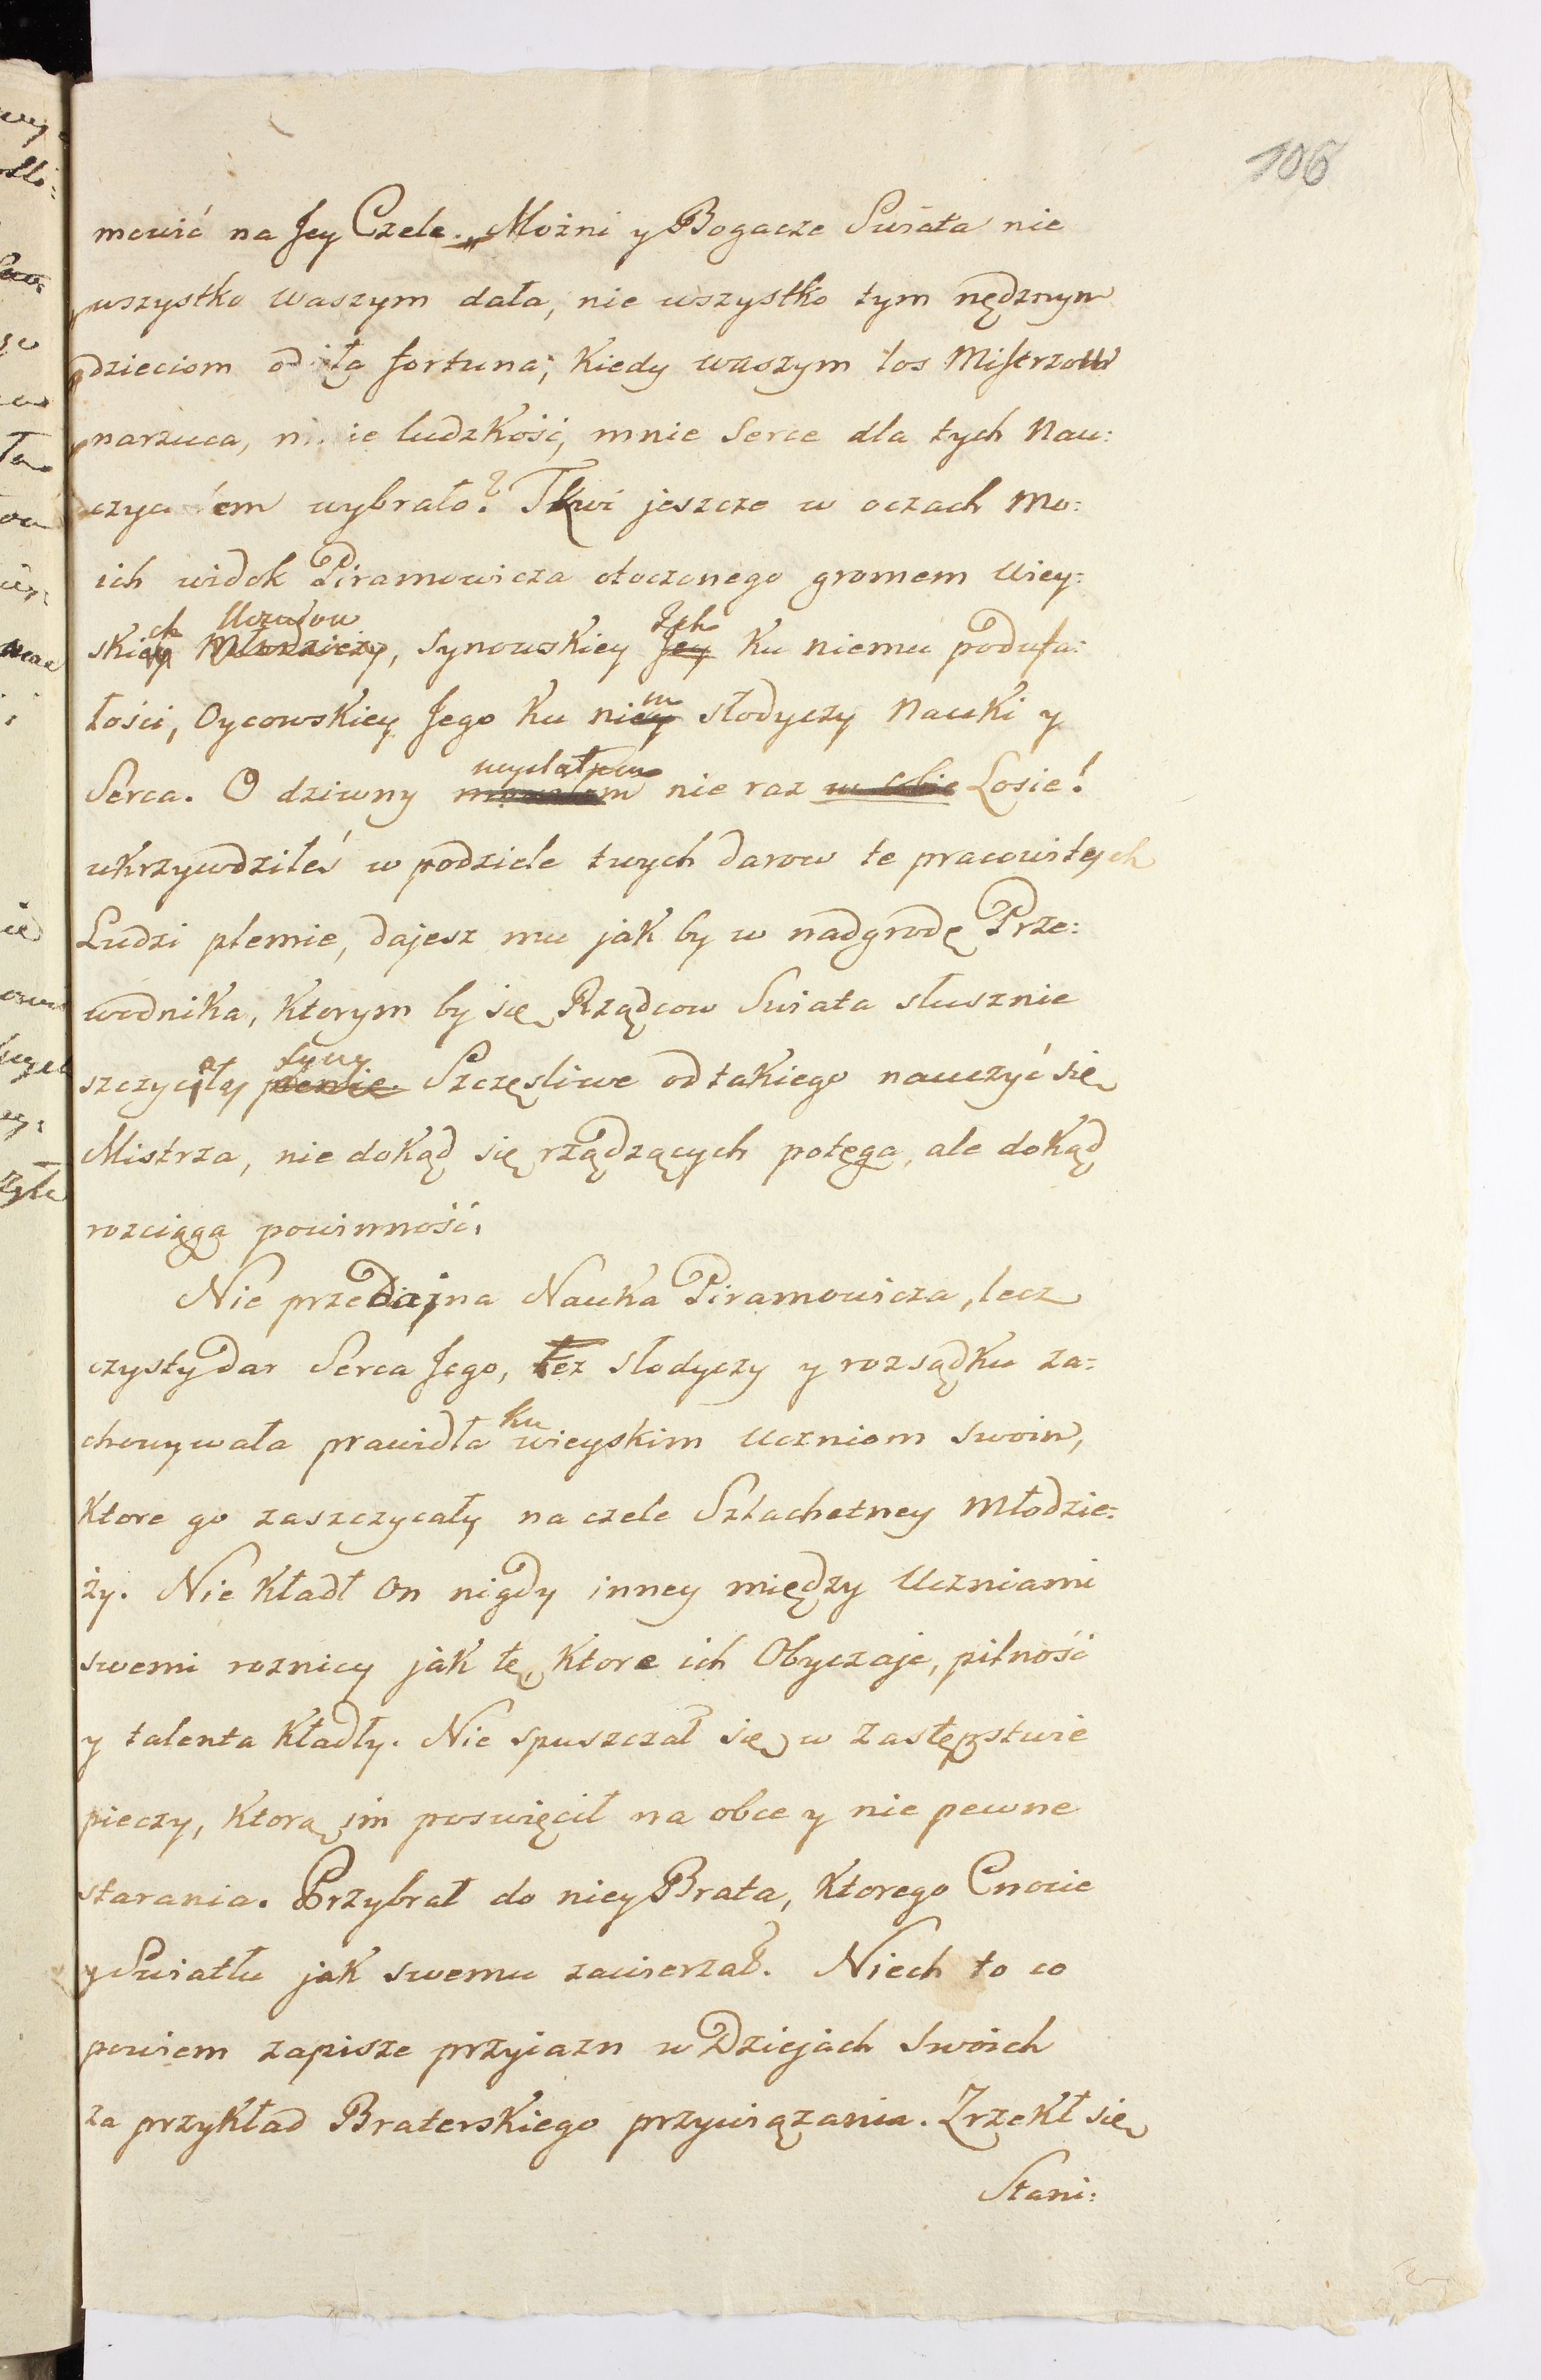 106
mowić na Jey Czele. „Możni y Bogacze Swiata nie
wszystko waszym dała, nie wszystko tym nędznym
dzieciom fortuna; Kiedy waszym los Mistrzow
narzuca, ludzKość, mnie Serce dla tych Nau:
wybrało? TKwi jeszcze w oczach Mo:
ich widok Piramowicza otoczonego gromem Wiey:
ch Uczniow Jch
skiey Młodzieży, synowskiey Jey Ku niemu poduła:
m
łości, Oycowskiey Jego Ku niey słodyczy NauKi y
Serca. O dziwny nie raz w sobie Losie!
uKrzywdziłeś w podziele twych darow te pracowitych
Ludzi plemie, dajesz mu jaK by w nadgrodę Prze:
wodnika, Ktorym by się Rządcow Swiata słusznie
syny
szczyciły plemie. Szczęsliwe od taKiego nauczyć się
Mistrza, nie doKąd się rządzących potęga, ale doKąd
rozciąga powinność.
Nie przedajna Nauka Piramowicza, lecz
czysty dar Serca Jego, też słodyczy y rozsądKu za:
ku
chowywała prawidła wieyskim Uczniom swoim,
Ktore go zaszczycały na czele Szlachetney Młodzie:
ży. Nie Kładł On nigdy inney między Uczniami
swemi roznicy jaK tę, Ktore ich Obyczaje, pilność
y talenta Kładły. Nie spuszczał się w zastępstwie
pieczy, Ktorą im poswięcił na obce y nie pewne
starania. Przybrał do niey Brata, Ktorego Cnocie
y Swiatłu jaK swemu zawierzał. Niech to co
powiem zapisze przyiazn w Dziejach Swoich
za przyKład BratersKiego przywiązania. ZrzeKł się
Stani: